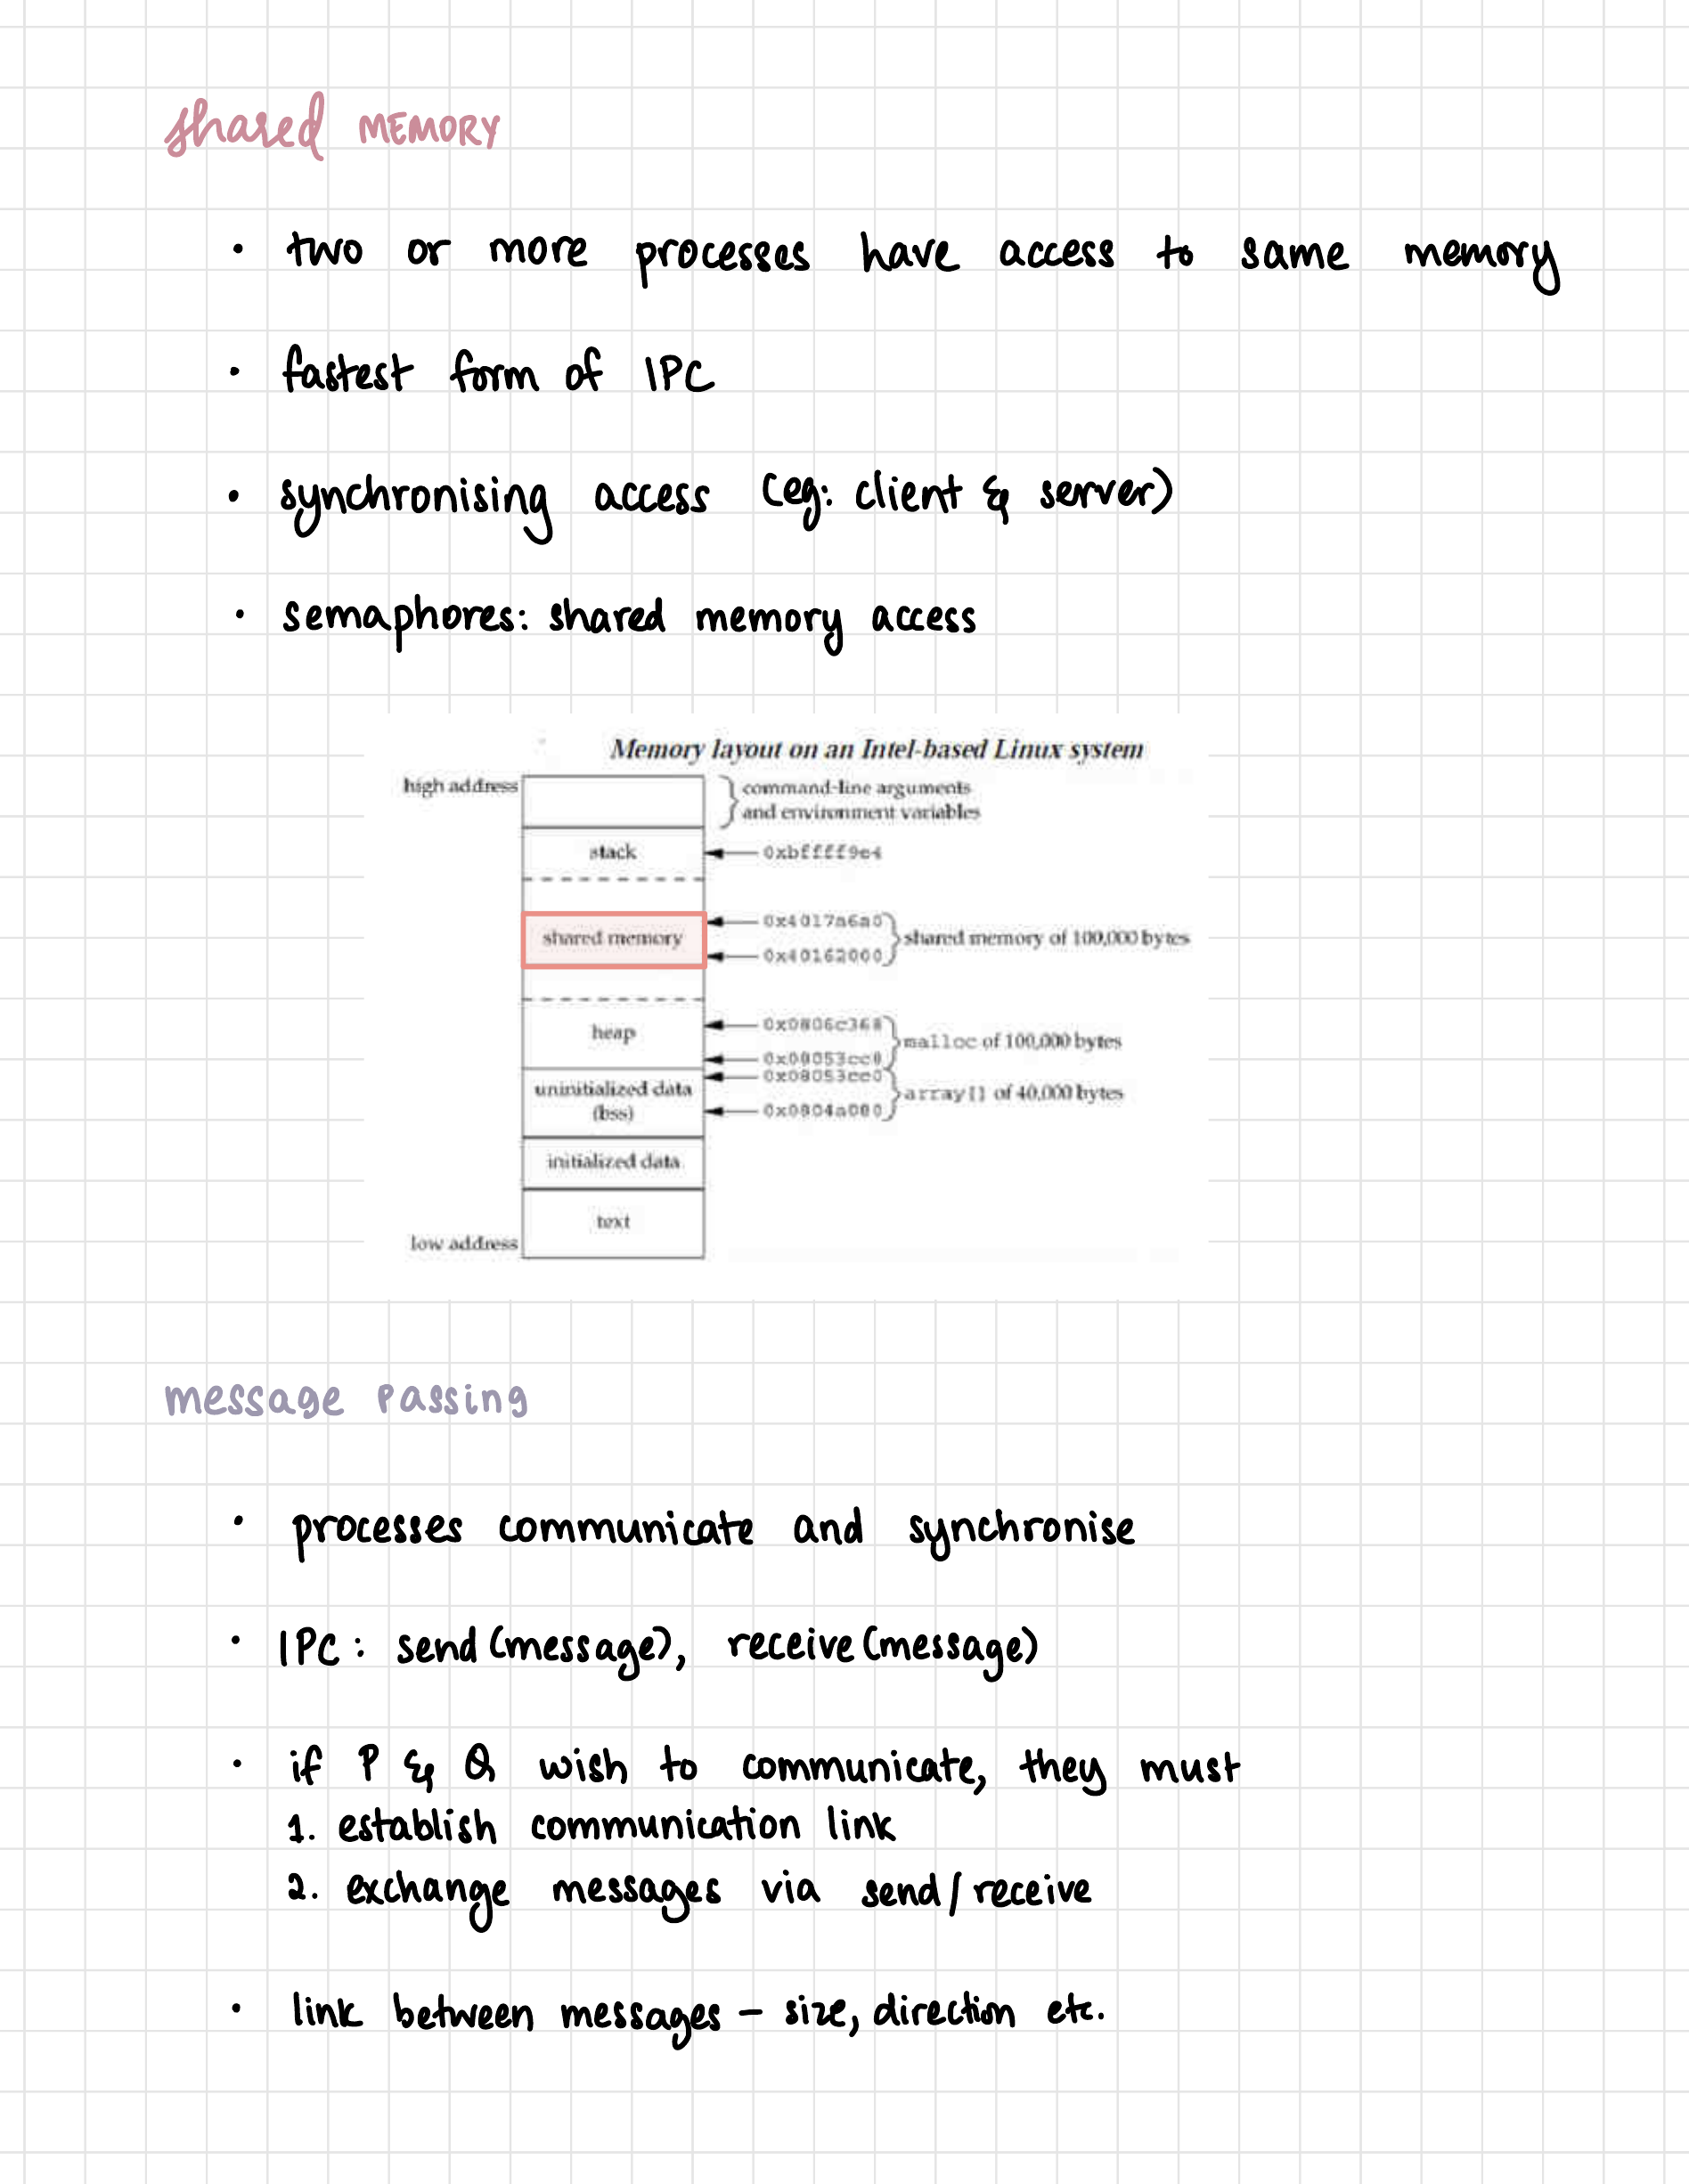 shared MEMORY
• two or more processes have access to same memory
• fastest form of IPC
• synchronising access (eg: client & server)
• semaphores: shared memory access
Memory layout on an Intel-based Linux system
high address
command-line arguments
and environment variables
stack
0xbffff9e4
shared memory
0x4017a6a0
0x40162000
shared memory of 100,000 bytes
heap
0x0806c368
malloc of 100,000 bytes
uninitialized data
(bss)
array[] of 40,000 bytes
initialized data
text
low address
message passing
• processes communicate and synchronise
• IPC: send(message), receive(message)
• if P & Q wish to communicate, they must
1. establish communication link
2. exchange messages via send/receive
• link between messages – size, direction etc.